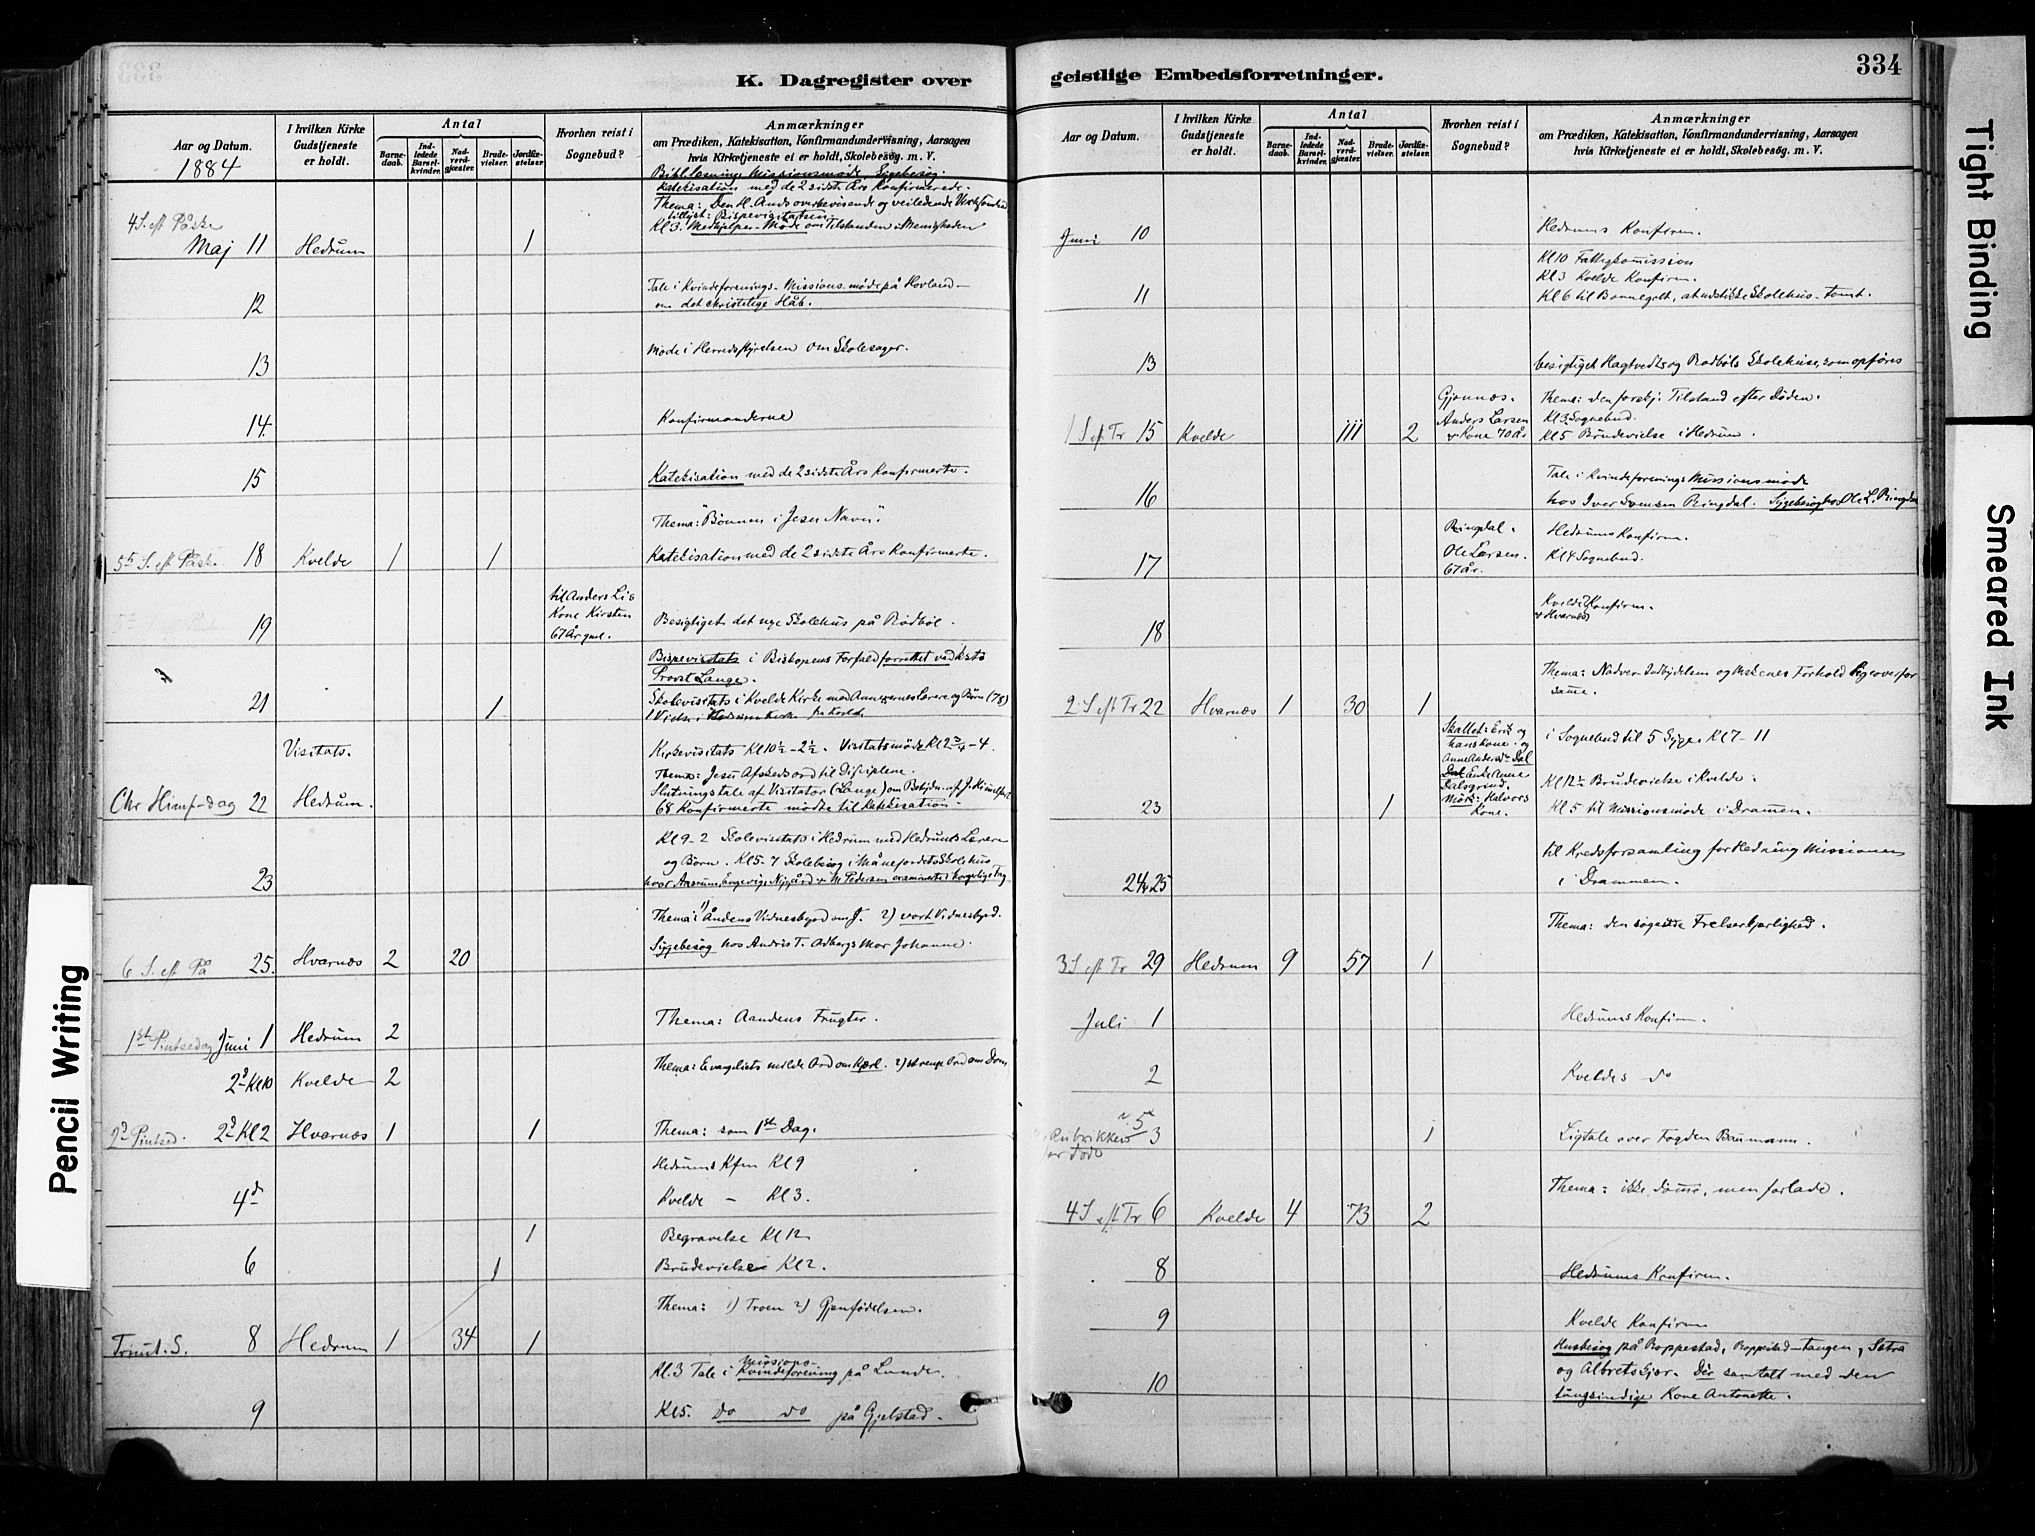 K. Dagregister over
Aar og Datum.
1884
I hvilken Kirke Gudstjeneste er holdt.
Antal
Barnedaab.
Indledede Barselkvinder.
Nadverdgjester.
Brudevielser.
Jordfæstelser
Hvorhen reist i Sognebud?
Anmærkninger
om Prædiken, Katekisation, Konfirmandundervisning, Aarsagen
hvis Kirketjeneste ei er holdt, Skolebesøg. m. V.
Bibellæsning Missionsmøde Sygebesøg.
Katekisation med de 2 sidste Års Konfirmerede.
Thema: Den H. Ånds overbevisende og veiledende Virksomhed
tillyst: Bispevisitatsen
Kl 3. Medhjelper-Møde om Tilstanden i Menigheden
4 S. eft Påske
Maj 11 Hedrum 1
12 Tale i Kvindeforenings-Missionsmøde på Hovland
om det christelige Håb.
13 Møde i Herredsstyrelsen om Skolesager.
14. Konfirmanderne
15 Katekisation med de 2 sidste Års Konfirmerte.
Thema: "Bønnen i Jesu Navn".
5te S. eft Påske 18 Kvelde 1 1 Katekisation med de 2 sidste Års Konfirmerte.
til Anders Lis
Kone Kirsten
67 År gml.
19 Besigtiget det nye Skolehus på Rødbøl.
Bispevisitats i Biskopens Forfald forrettet ved Kst.
Provst Lange.
21 1 Skolevisitats i Kvelde Kirke med Annexernes Lærere og Børn (78)
1 Vielse i Hedrum Kirke
Visitats.
Kirkevisitats Kl 10½-2½. Visitatsmøde Kl 2¾-4.
Thema: Jesu Afskedsord til Disciplene.
Slutningstale af Visitator (Lange) om
Chr Himf-dag 22 Hedrum. 68 Konfirmerte mødte til Katekisation.
Kl 9-2 Skolevisitats i Hedrum med Hedrums Lærere
og Børn. Kl 5-7 Skolebesøg i Månejordets Skolehus
23 hvor
Thema: 1) Åndens Vidnesbyrd om J. 2) vort Vidnesbyrd.
6 S. eft På 25. Hvarnæs 2 20 Sygebesøg hos Andris T. Odbergs Mor Johanne.
1ste Pintsedag Juni 1 Hedrum 2 Thema: Aandens Frugter.
2d Kl 10 Kvelde 2 Thema: Evangeliets milde Ord om Kjærl. 2) strenge Ord om Dom
2d Pintsed. 2d Kl 2 Hvarnæs 1 1 Thema: som 1ste Dag.
Hedrums Kfm Kl 9
4d Kvelde - Kl 3.
1 Begravelse Kl 12
6 1 Brudevielse Kl 2.
Thema: 1) Troen 2) Gjenfødelsen.
Trinit. S. 8 Hedrum 1 34 1
Missions-
Kl. 3 Tale i Kvindeforening på Lunde.
9 Kl 5. Do do på Gjelstad.
geistlige Embedsforretninger.
334
Aar og Datum.
I hvilken Kirke Gudstjeneste er holdt.
Antal
Barnedaab.
Indledede Barselkvinder.
Nadverdgjester.
Brudevielser.
Jordfæstelser.
Hvorhen reist i Sognebud?
Anmærkninger
om Prædiken, Katekisation, Konfirmandundervisning, Aarsagen
hvis Kirketjeneste ei er holdt, Skolebesøg. m. V.
Juni 10 Hedrums Konfirm.
Kl 10 Fattigkomission
Kl 3 Kvelde Konfirm.
11 Kl 6 til Bonnegolt, at udstikke Skolehus-Tomt.
13 besigtiget Hagtvedts og Rødbøls Skolehuse, som opføres
Gjønnæs.
Anders Larsen
& Kone 70 år
Thema: den forskj. Tilstand efter Døden.
Kl 3 Sognebud.
1 S eft Tr 15 Kvelde 111 2 Kl 5 Brudevielse i Hedrum.
Tale i Kvindeforenings Missionsmøde
16 hos Iver Svensen Ringdal. Sygebesøg hos Ole L. Ringdal
Ringdal.
Ole Larsen.
67 år.
Hedrums Konfirm.
17 Kl 4 Sognebud.
18 Kvelde & Hvarnæs Konfirm.
Thema: Nadver-Indbydelsen og Mskenes Forhold ligeoverfor
samme.
2. S eft Tr 22 Hvarnæs 1 30 1
Skallet: Erik og
hans Kone. og
Anne Andersdr. Dal
Dal Enke Anne
Dalsgrind.
Mørk: Halvors
Kone.
i Sognebud til 5 Syge. Kl 7-11
Kl 12½ Brudevielse i Kvelde.
23 1 Kl 5 til Missionsmøde i Drammen.
24 & 25 til Kredsforsamling for Hedning Missionen
i Drammen.
Thema: den søgende Frelserkjærlighed.
3 S eft Tr 29 Hedrum 9 57 1
Juli 1 Hedrums Konfirm.
2 Kveldes do
Rubrikken for Døde
5
3 1 Ligtale over Fogden Baumann.
Thema: ikke dømme, men forlade.
4 S eft Tr 6 Kvelde 4 73 2
8 Hedrums Konfirm.
9 Kvelde Konfirm
Husbesøg på Roppestad, Roppestad-Tangen, Sætra
og Albrets Gjor. Der samtalt med den
10 tungsindige Kone Antonette.
Tight Binding
Smeared Ink
Pencil Writing